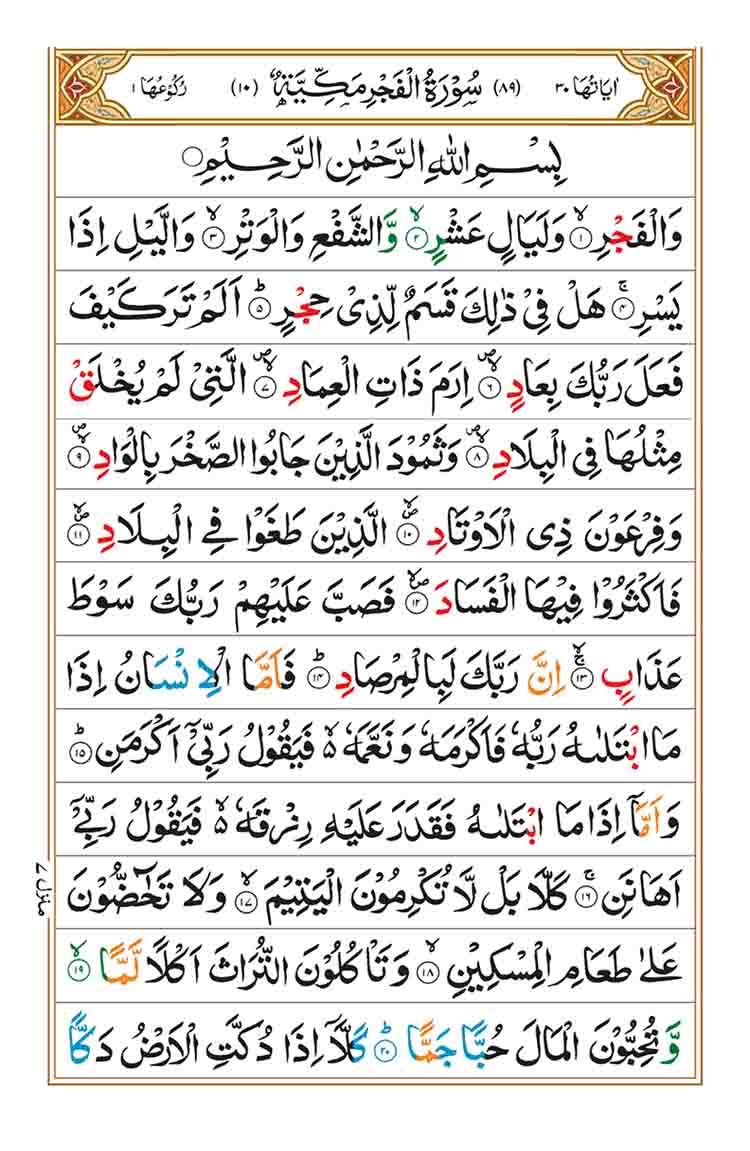 اٰيَاتُهَا ٣٠ (٨٩) سُوْرَةُ الْفَجْرِ مَكِّيَّةٌ (١٠) رُكُوْعُهَا ١
بِسْمِ اللّٰهِ الرَّحْمٰنِ الرَّحِيْمِ ○
وَالْفَجْرِ ۙ‏﴿۱﴾ وَلَيَالٍ عَشْرٍ ۙ‏﴿۲﴾ وَّالشَّفْعِ وَالْوَتْرِ ۙ‏﴿۳﴾ وَالَّيْلِ اِذَا
يَسْرِ ۚ‏﴿۴﴾ هَلْ فِيْ ذٰلِكَ قَسَمٌ لِّذِيْ حِجْرٍ ؕ‏﴿۵﴾ اَلَمْ تَرَ كَيْفَ
فَعَلَ رَبُّكَ بِعَادٍ ۪ۙ‏﴿۶﴾ اِرَمَ ذَاتِ الْعِمَادِ ۪ۙ‏﴿۷﴾ الَّتِيْ لَمْ يُخْلَقْ
مِثْلُهَا فِي الْبِلَادِ ۪ۙ‏﴿۸﴾ وَثَمُوْدَ الَّذِيْنَ جَابُوا الصَّخْرَ بِالْوَادِ ۪ۙ‏﴿۹﴾
وَفِرْعَوْنَ ذِي الْاَوْتَادِ ۪ۙ‏﴿۱۰﴾ الَّذِيْنَ طَغَوْا فِي الْبِلَادِ ۪ۙ‏﴿۱۱﴾
فَاَكْثَرُوْا فِيْهَا الْفَسَادَ ۪ۙ‏﴿۱۲﴾ فَصَبَّ عَلَيْهِمْ رَبُّكَ سَوْطَ
عَذَابٍ ۙۚ‏﴿۱۳﴾ اِنَّ رَبَّكَ لَبِالْمِرْصَادِ ؕ‏﴿۱۴﴾ فَاَمَّا الْاِنْسَانُ اِذَا
مَا ابْتَلٰىهُ رَبُّهٗ فَاَكْرَمَهٗ وَنَعَّمَهٗ ۙ۬ فَيَقُوْلُ رَبِّيْٓ اَكْرَمَنِ ؕ‏﴿۱۵﴾
وَاَمَّآ اِذَا مَا ابْتَلٰىهُ فَقَدَرَ عَلَيْهِ رِزْقَهٗ ۙ۬ فَيَقُوْلُ رَبِّيْٓ
اَهَانَنِ ۚ‏﴿۱۶﴾ كَلَّا بَلْ لَّا تُكْرِمُوْنَ الْيَتِيْمَ ۙ‏﴿۱۷﴾ وَلَا تَحٰٓضُّوْنَ
عَلٰى طَعَامِ الْمِسْكِيْنِ ۙ‏﴿۱۸﴾ وَتَاْكُلُوْنَ التُّرَاثَ اَكْلًا لَّمًّا ۙ‏﴿۱۹﴾
وَّتُحِبُّوْنَ الْمَالَ حُبًّا جَمًّا ؕ‏﴿۲۰﴾ كَلَّآ اِذَا دُكَّتِ الْاَرْضُ دَكًّا
منزل ٧